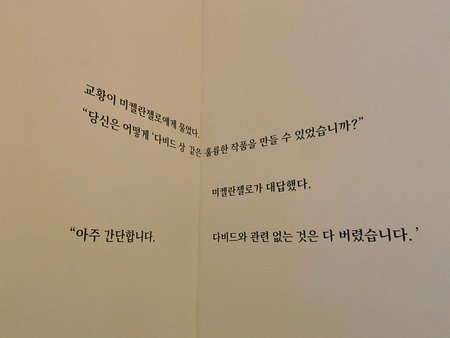 교황이 미켈란젤로에게 물었다.
“당신은 어떻게 '다비드 상 같은 훌륭한 작품을 만들 수 있었습니까?”
미켈란젤로가 대답했다.
“아주 간단합니다. 다비드와 관련 없는 것은 다 버렸습니다.’